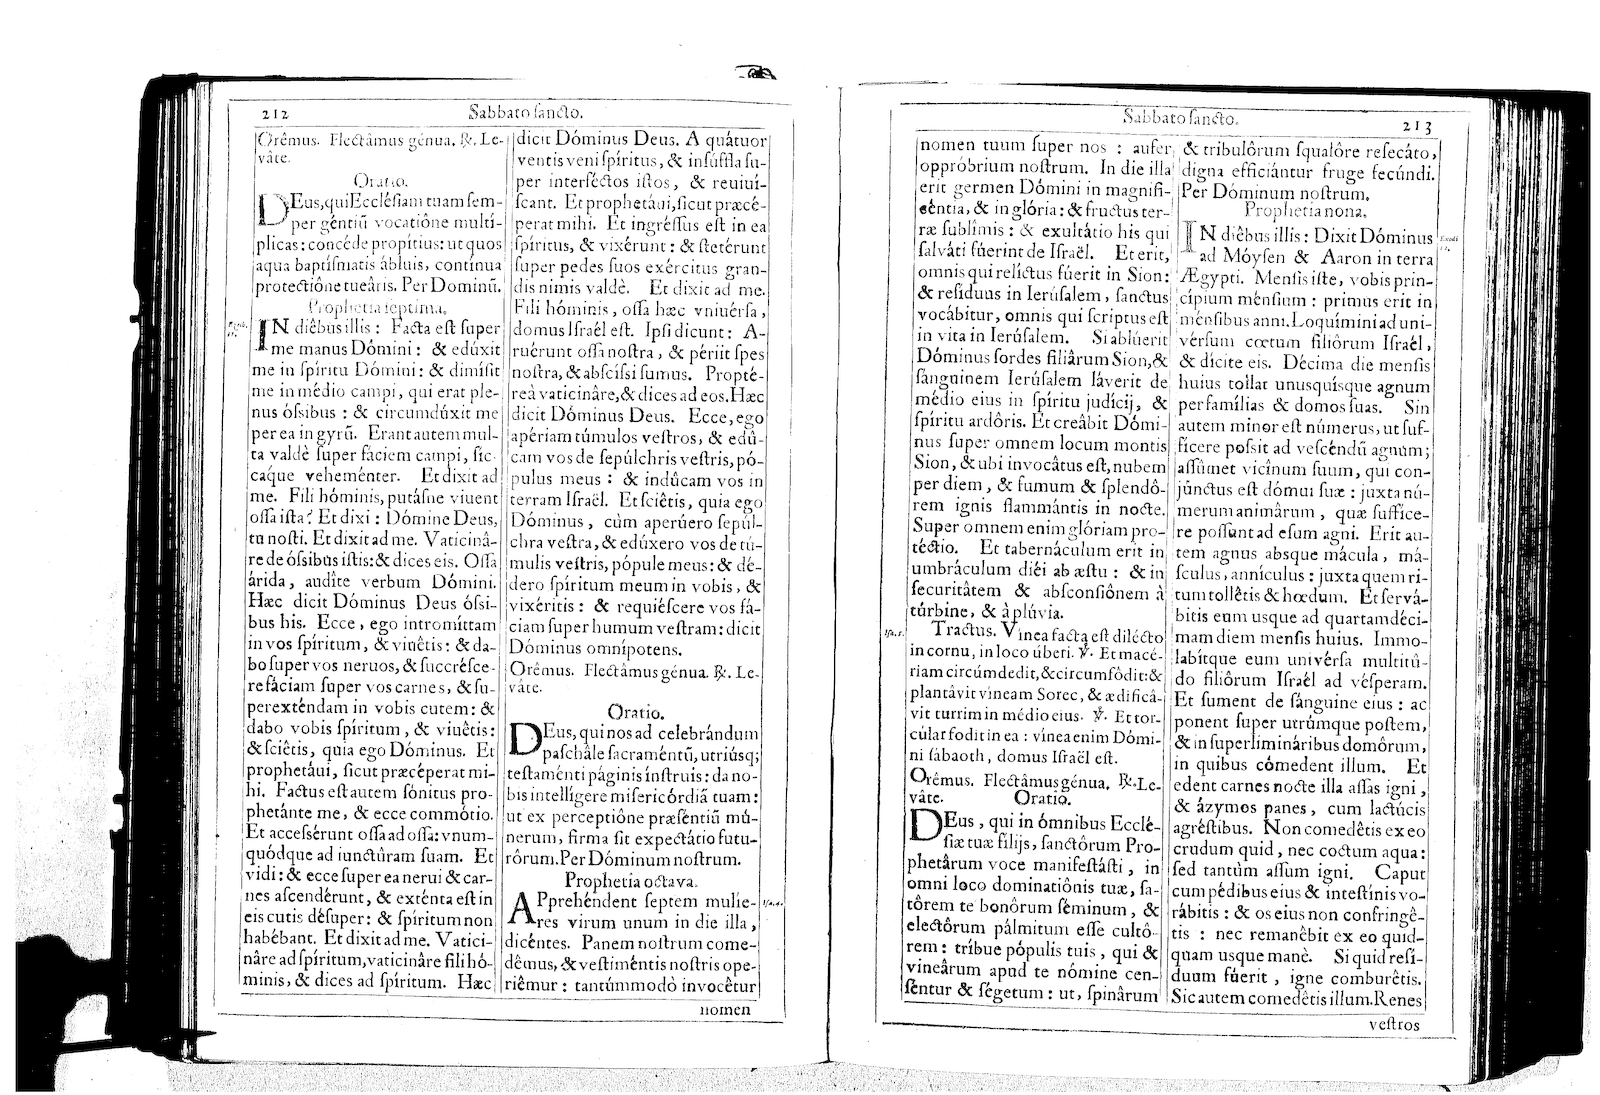 212
Sabbato sancto.
Orêmus. Flectâmus génua. ℟. Le-
vâte.
Oratio.
DEus, qui Ecclésiam tuam sem-
per géntiũ vocatiône multí-
plicas: concéde propítius: ut quos
aqua baptísmatis ábluis, contínua
protectiône tueâris. Per Dominũ.
Prophetia septima.
IN diêbus illis: Facta est super
me manus Dómini: & edúxit
me in spíritu Dómini: & dimísit
me in médio campi, qui erat ple-
nus óssibus: & circumdúxit me
per ea in gyrũ. Erant autem mul-
ta valdè super fáciem campi, sic-
caque veheménter. Et dixit ad
me. Fili hóminis, putásne viuent
ossa ista? Et dixi: Dómine Deus,
tu nosti. Et dixit ad me. Vaticinâ-
re de óssibus istis: & dices eis. Ossa
árida, audîte verbum Dómini.
Hæc dicit Dóminus Deus óssi-
bus his. Ecce, ego intromíttam
in vos spíritum, & viuêtis: & da-
bo super vos neruos, & succréscere
re fáciam super vos carnes, & su-
perexténdam in vobis cutem: &
dabo vobis spíritum, & viuêtis:
& sciêtis, quia ego Dóminus. Et
prophetáui, sicut præcéperat mi-
hi. Factus est autem sónitus pro-
phetánte me, & ecce commótio.
Et accessérunt ossa ad ossa: vnum-
quódque ad iunctûram suam. Et
vidi: & ecce super ea nerui & car-
nes ascendérunt, & exténta est in
eis cutis désuper: & spíritum non
habébant. Et dixit ad me. Vatici-
nâre ad spíritum, vaticinâre fili hó-
minis, & dices ad spíritum. Hæc
dicit Dóminus Deus. A quátuor
ventis veni spíritus, & insúffla su-
per interféctos istos, & reuiuí-
scant. Et prophetáui, sicut præcé-
perat mihi. Et ingréssus est in ea
spíritus, & vixérunt: & stetérunt
super pedes suos exércitus gran-
dis nimis valdè. Et dixit ad me.
Fili hóminis, ossa hæc vniuérsa,
domus Israël est. Ipsi dicunt: A-
ruérunt ossa nostra, & périit spes
nostra, & abscíssi sumus. Propté-
reà vaticinâre, & dices ad eos. Hæc
dicit Dóminus Deus. Ecce, ego
apériam túmulos vestros, & edû-
cam vos de sepúlchris vestris, pó-
pulus meus: & indûcam vos in
terram Israël. Et sciêtis, quia ego
Dóminus, cùm aperúero sepúl-
chra vestra, & edúxero vos de tú-
mulis vestris, pópule meus: & dé-
dero spíritum meum in vobis, &
vixéritis: & requiéscere vos fá-
ciam super humum vestram: dicit
Dóminus omnípotens.
Orêmus. Flectâmus génua. ℟. Le-
vâte.
Oratio.
DEus, qui nos ad celebrándum
paschâle sacraméntũ, utriúsq;
testaménti páginis ínstruis: da no-
bis intellígere misericórdiã tuam:
ut ex perceptiône præséntiũ mú-
nerum, firma sit expectátio futu-
rórum. Per Dóminum nostrum.
Prophetia octava.
APprehéndent septem mulíe-
res virum unum in die illa,
dicéntes. Panem nostrum come-
dêmus, & vestiméntis nostris ope-
riêmur: tantúmmodò invocêtur
Isa. 4.
nomen
Sabbato sancto.
213
nomen tuum super nos: aufer
oppróbrium nostrum. In die illa
erit germen Dómini in magnifi-
céntia, & in glória: & fructus ter-
ræ sublímis: & exultátio his qui
salváti fúerint de Israël. Et erit,
omnis qui relíctus fúerit in Sion:
& resíduus in Ierúsalem, sanctus
vocábitur, omnis qui scriptus est
in vita in Ierúsalem. Si ablúerit
Dóminus sordes filiârum Sion, &
sánguinem Ierúsalem láverit de
médio eius in spíritu judícij, &
spíritu ardôris. Et creâbit Dómi-
nus super omnem locum montis
Sion, & ubi invocâtus est, nubem
per diem, & fumum & splendô-
rem ignis flammántis in nocte.
Super omnem enim glóriam pro-
téctio. Et tabernáculum erit in
umbráculum diéi ab æstu: & in
securitâtem & absconsiônem à
túrbine, & à plúvia.
Isa. 5.
Tractus. Vinea facta est dilécto
in cornu, in loco úberi. ℣. Et macé-
riam circúmdedit, & circumfôdit: &
plantávit víneam Sorec, & ædificá-
vit turrim in médio eius. ℣. Et tor-
cúlar fodit in ea: vínea enim Dómi-
ni sábaoth, domus Israël est.
Orêmus. Flectâmus génua. ℟. Le-
vâte.
Oratio.
DEus, qui in ómnibus Ecclé-
siæ tuæ fílijs, sanctórum Pro-
phetârum voce manifestásti, in
omni loco dominatiônis tuæ, sa-
tôrem te bonôrum séminum, &
electôrum pálmitum esse cultô-
rem: tríbue pópulis tuis, qui &
vineârum apud te nómine cen-
sentur & ségetum: ut, spinârum
& tribulôrum squalôre resecáto,
digna efficiántur fruge fecúndi.
Per Dóminum nostrum.
Prophetia nona.
IN diêbus illis: Dixit Dóminus
ad Móysen & Aaron in terra
Ægypti. Mensis iste, vobis prin-
cípium ménsium: primus erit in
ménsibus anni. Loquímini ad uni-
vérsum cœtum filiôrum Israël,
& dícite eis. Décima die mensis
huius tollat unusquísque agnum
per famílias & domos suas. Sin
autem minor est númerus, ut suf-
fícere possit ad vescéndũ agnum;
assûmet vicînum suum, qui con-
jûnctus est dómui suæ: juxta nú-
merum animârum, quæ suffíce-
re possunt ad esum agni. Erit au-
tem agnus absque mácula, má-
sculus, annículus: juxta quem ri-
tum tollêtis & hœdum. Et servá-
bitis eum usque ad quartamdéci-
mam diem mensis huius. Immo-
labítque eum univérsa multitû-
do filiôrum Israël ad vésperam.
Et sument de sánguine eius: ac
ponent super utrúmque postem,
& in superlimináribus domôrum,
in quibus cómedent illum. Et
edent carnes nocte illa assas igni,
& ázymos panes, cum lactúcis
agréstibus. Non comedêtis ex eo
crudum quid, nec coctum aqua:
sed tantùm assum igni. Caput
cum pédibus eius & intestínis vo-
rábitis: & os eius non confringê-
tis: nec remanêbit ex eo quid-
quam usque manè. Si quid resí-
duum fúerit, igne comburêtis.
Sic autem comedêtis illum. Renes
vestros